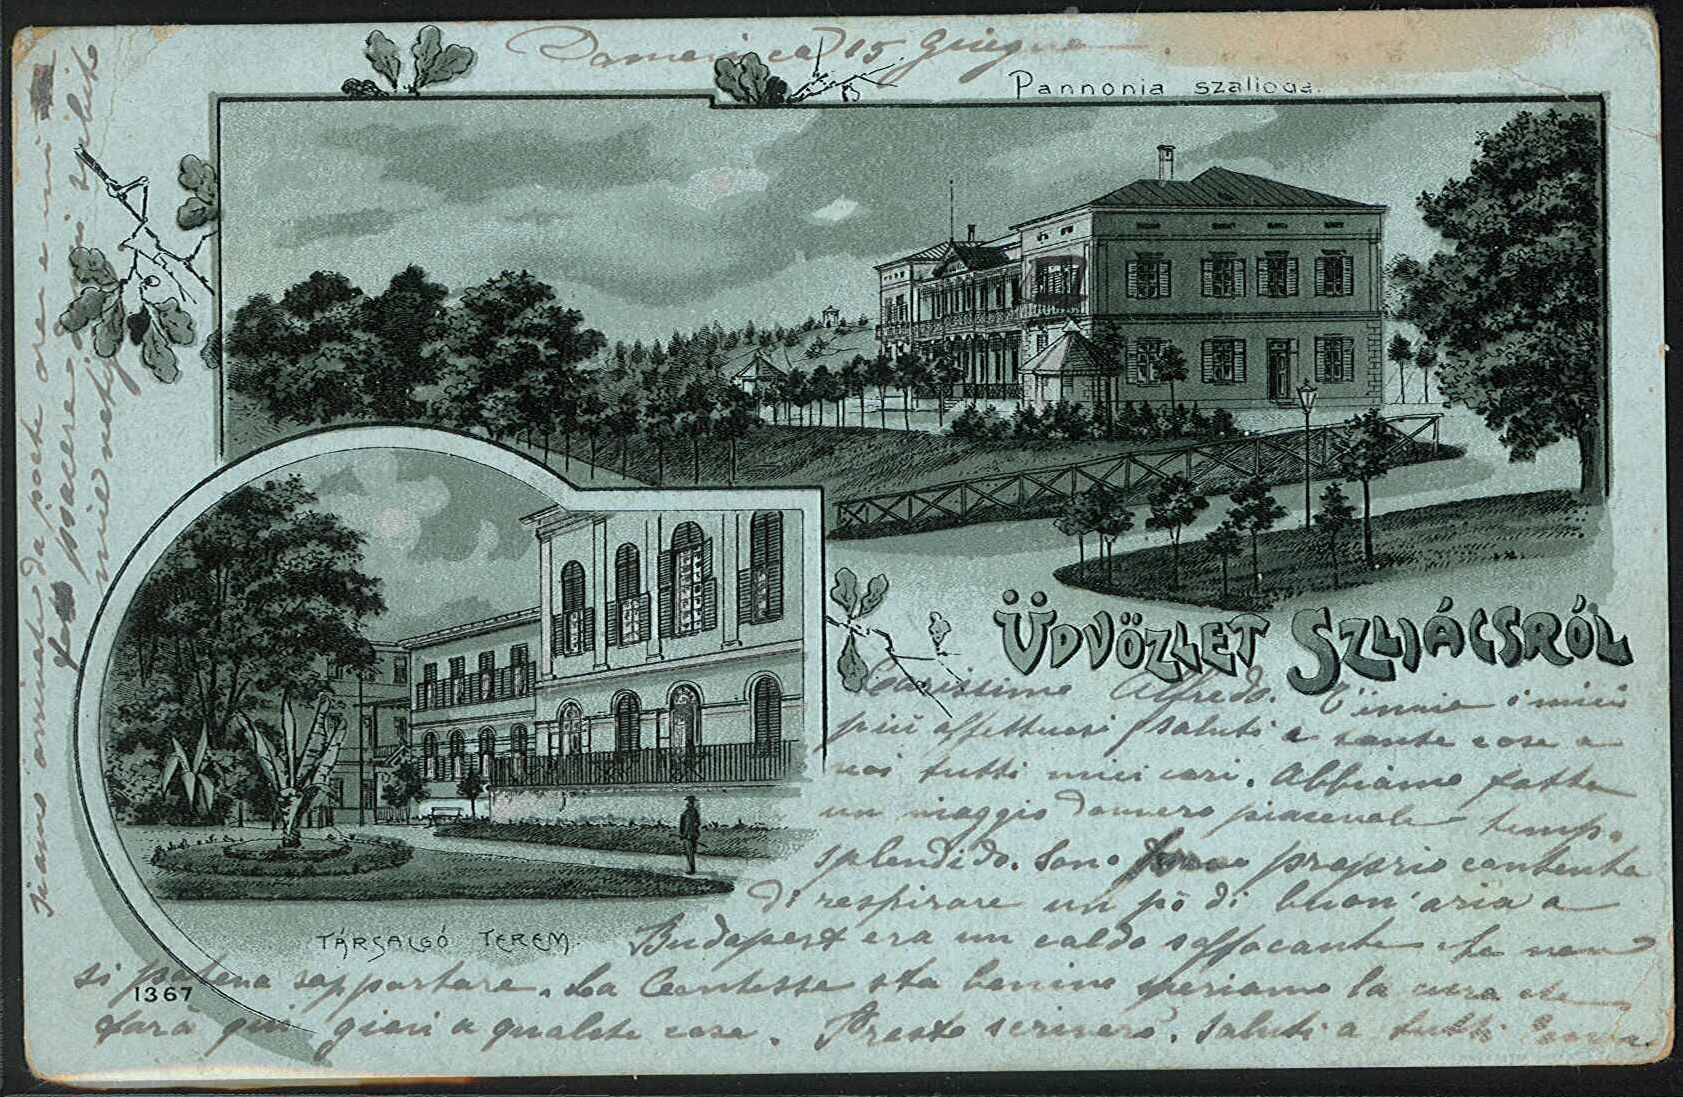 Domenica 15 Giugno
Pannonia szálloda.
ÜDVÖZLET SZLIÁCSRÓL
Carissimo Alfredo. T'invio i miei
più affettuosi saluti e tante cose a
voi tutti miei cari. Abbiamo fatto
un viaggio davvero piacevole tempo
splendido. Sono proprio contenta
di respirare un pò di buon'aria a
Budapest era un caldo soffocante che non
si poteva sopportare. La Contessa sta benino speriamo la cura che
farà qui giovi a qualche cosa. Presto scriverò. Saluti a tutti
TÁRSALGÓ TEREM.
1367
siamo arrivate da poche ore e mi
piacere